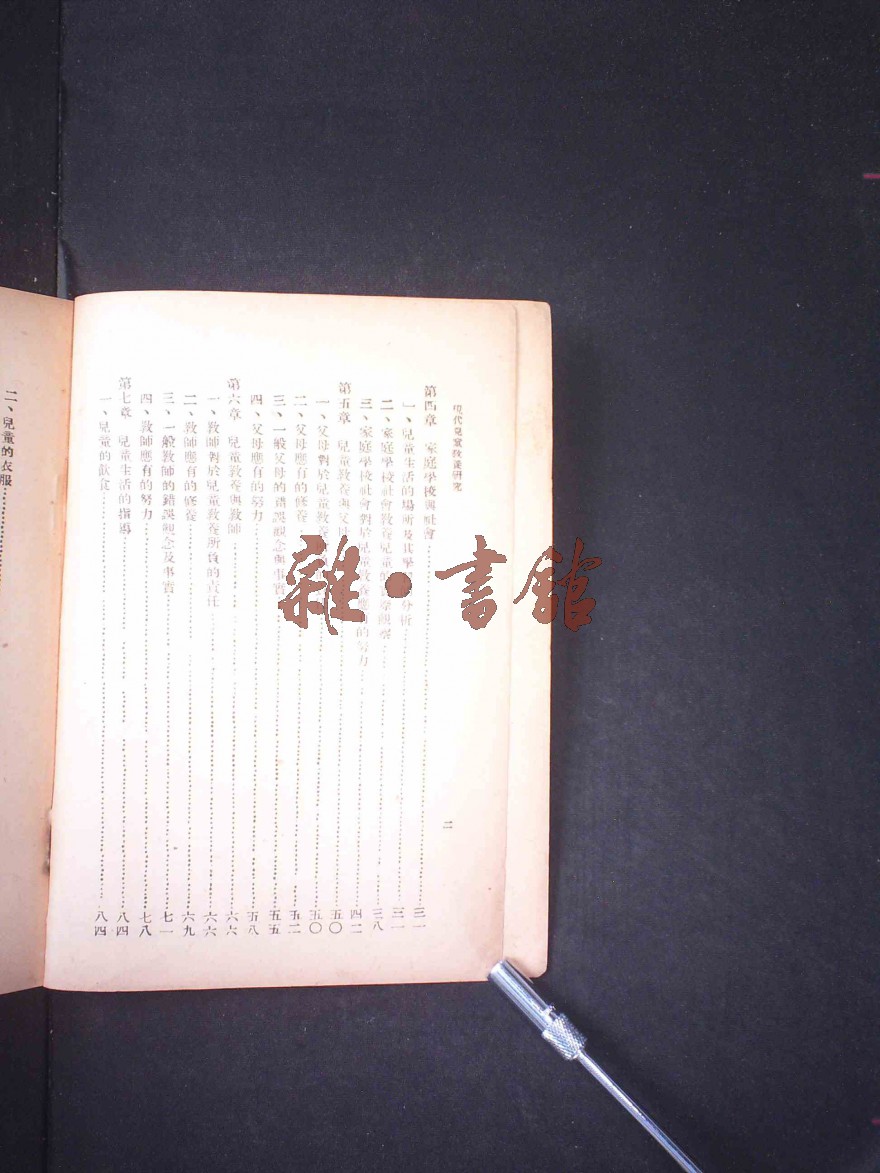 現代兒童教養研究
二
第四章 家庭學校與社會……三一
一、兒童生活的場所及其學 分析……三一
二、家庭學校社會教養兒童 觀察……三八
三、家庭學校社會對於兒童教養應有的努力……四二
第五章 兒童教養與父母……五〇
一、父母對於兒童教養……五〇
二、父母應有的修養……五二
三、一般父母的錯誤觀念與事實……五五
四、父母應有的努力……五八
第六章 兒童教養與教師……六六
一、教師對於兒童教養所負的責任……六六
二、教師應有的修養……六九
三、一般教師的錯誤觀念及事實……七一
四、教師應有的努力……七八
第七章 兒童生活的指導……八四
一、兒童的飲食……八四
二、兒童的衣服……
雜·書館